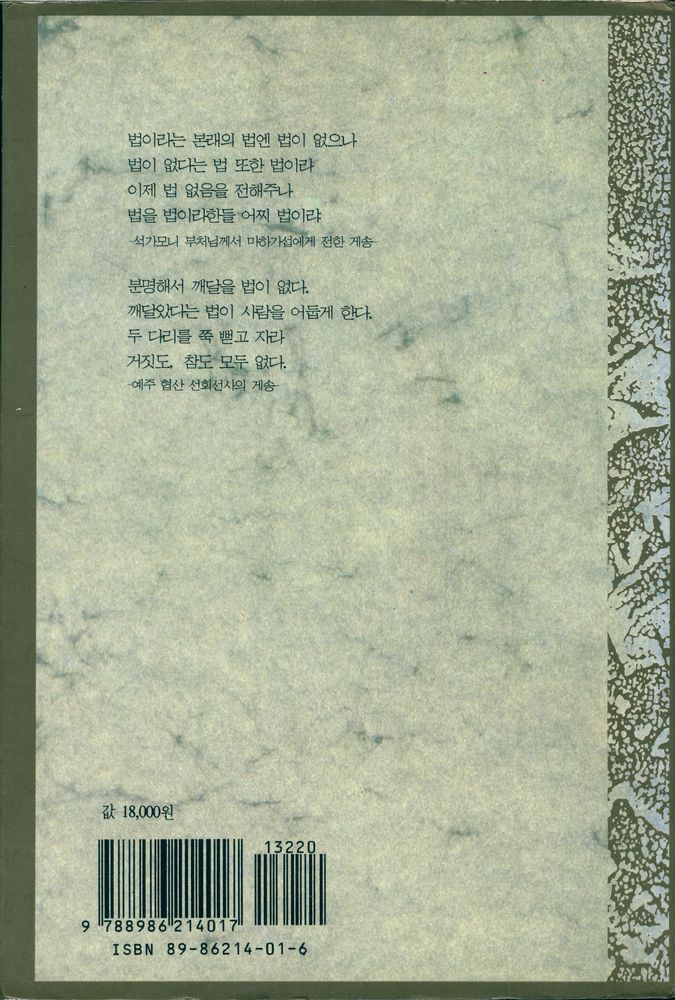 법이라는 본래의 법엔 법이 없으나
법이 없다는 법 또한 법이라
이제 법 없음을 전해주나
법을 법이라한들 어찌 법이랴
-석가모니 부처님께서 마하가섭에게 전한 게송-
분명해서 깨달을 법이 없다.
깨달있다는 법이 사람을 어둡게 한다.
두 다리를 쭉 뻗고 자라
거짓도, 참도 모두 없다.
-예주 협산 선회선사의 게송-
값 18,000원
13220
9 788986 214017
ISBN 89-86214-01-6